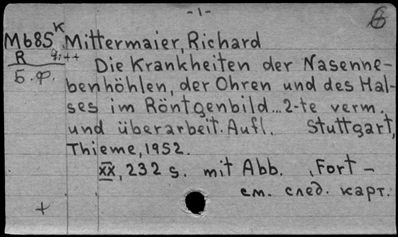 -1-
6
M685 K Mittermaier, Richard
R
Б.ф. Die Krankheiten der Nasenne-
benhöhlen, der Ohren und des Hal-
ses im Röntgenbild...2-te verm.
und überarbeit. Aufl. Stuttgart,
Thieme, 1952.
XX, 232 s. mit Abb. , Fort-
см. след. карт.
+